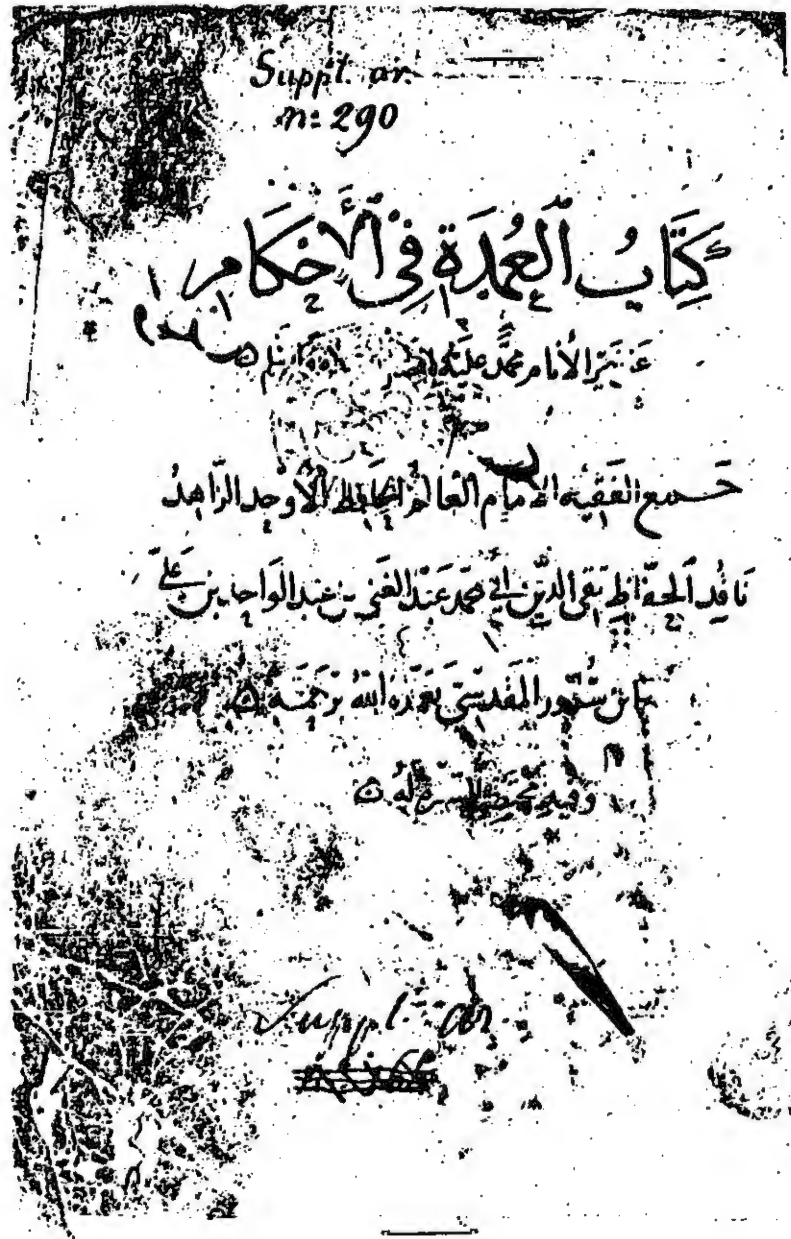 Suppl. ar.
nº 290
كِتَابُ ٱلعُمدَةِ فِي ٱلأَحْكَامِ
عَن خَيْرِ الأنامِ محمَّد عليه
جمع الفقيه الامام العالم الحافظ الأوحد الزاهد
ناقد الحفّاظ تقى الدين ابي محمد عبد الغنى بن عبد الواحد بن على
بن سُرُور المقدسىّ تغمّده الله برحمته
وفيه مختصر السيرة له
Suppl. ar.